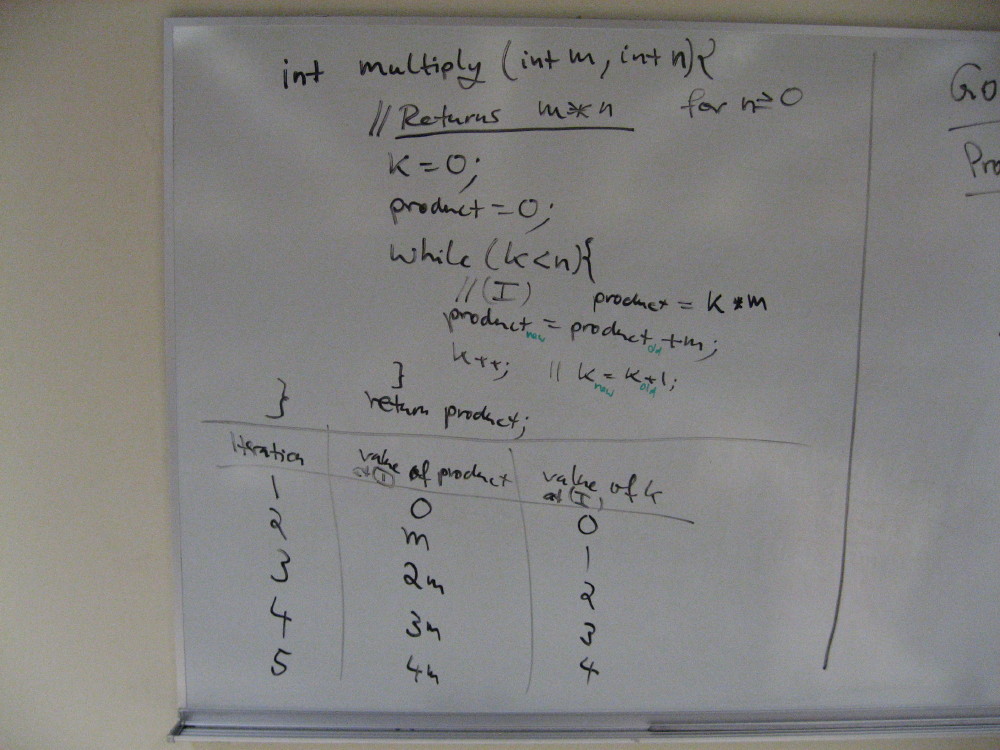 int multiply (int m, int n){
// Returns m*n for n≥0
k=0;
product=0;
while (k<n){
//(I) product = k*m
product new = product old +m;
k++; // k new = k old +1;
}
} return product;
Iteration value of product at (I) value of k at (I)
1 0 0
2 m 1
3 2m 2
4 3m 3
5 4m 4
Go
Pro